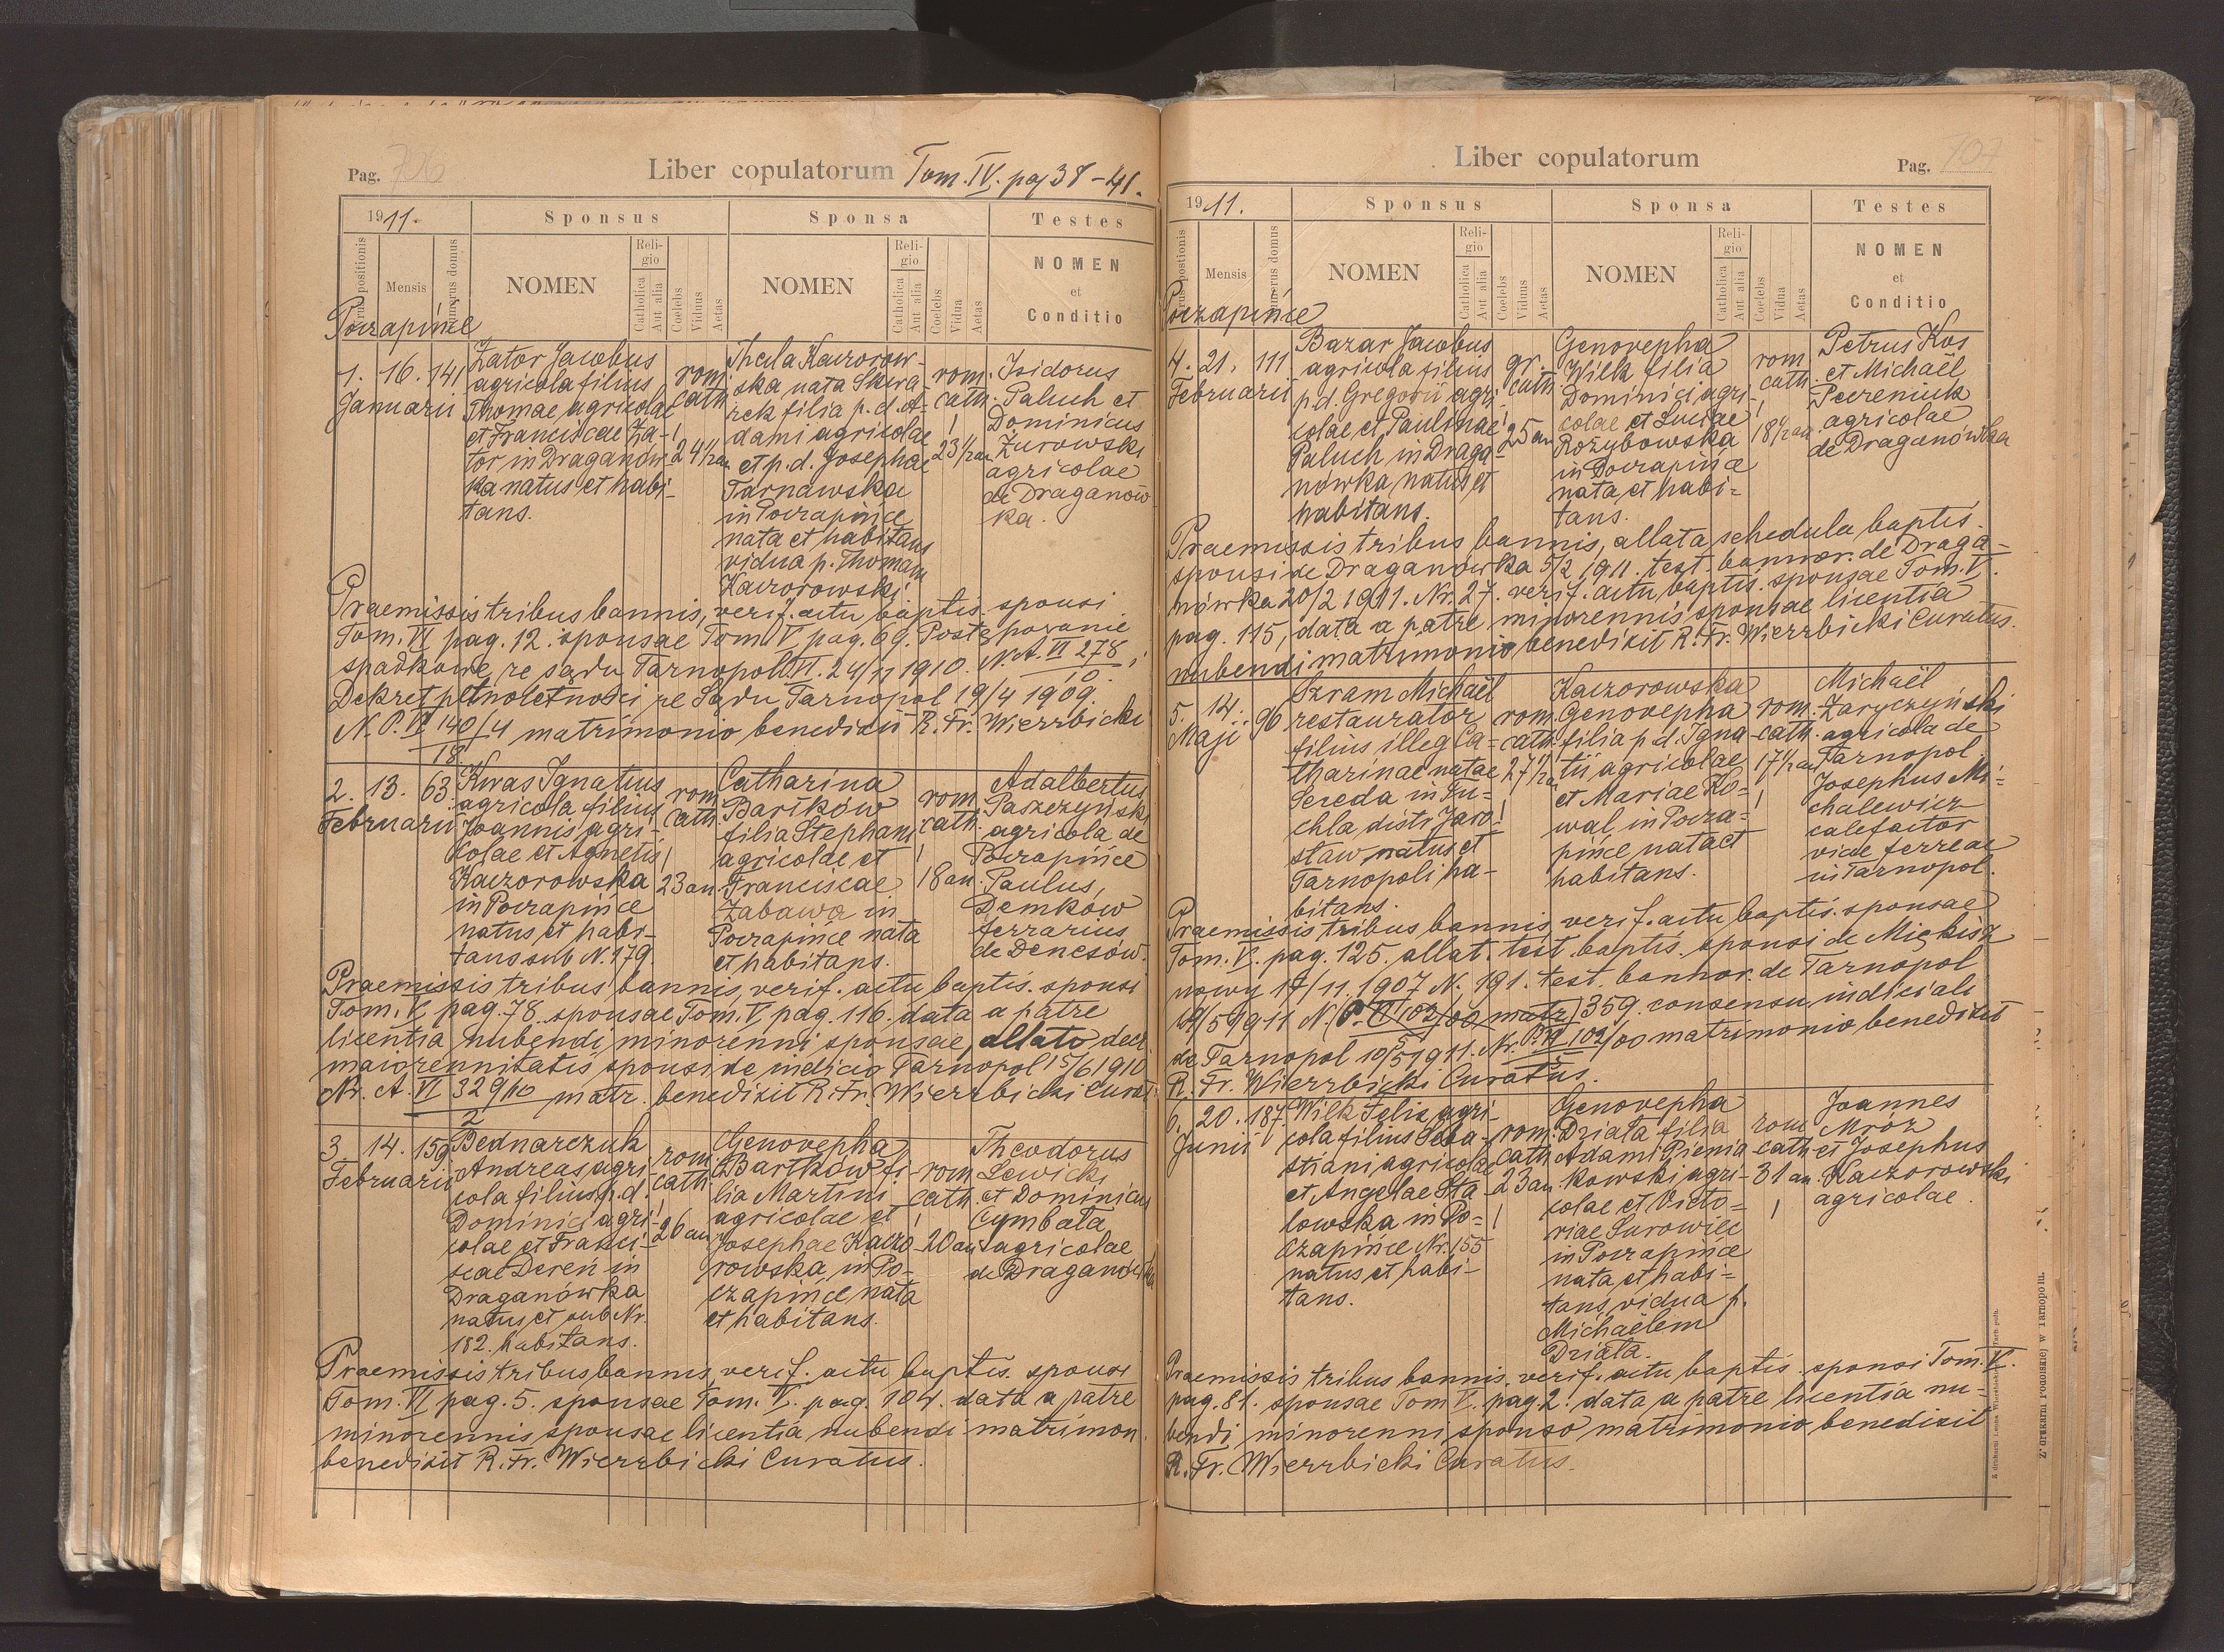 Pag. 706
Liber copulatorum Tom. IV. pag 38-41.
1911.
Sponsus
Sponsa
Testes
Mensis
NOMEN
Religio
Catholica
Aut alia
Coelebs
Viduus
Aetas
NOMEN
Religio
Catholica
Aut alia
Coelebs
Vidua
Aetas
NOMEN
et
Conditio
Poczapińce
1. 16. 141
Januarii
Zator Jacobus
agricola filius
Thomae agricolae
et Franciscae Za-
tor in Draganów-
ka natus et habi-
tans.
rom.
cath.
!
24 1/2 an
Thecla Kaczorow-
ska nata Skwa-
rek filia p. d. A-
dami agricolae
et p. d. Josephae
Tarnawska
in Poczapińce
nata et habitans
vidua p. Thomam
Kaczorowski
rom.
cath.
!
23 1/2 an
Isidorus
Paluch et
Dominicus
Żurowski
agricolae
de Draganów
ka.
Praemissis tribus bannis, verif. actu baptis. sponsi
Tom. VI pag. 12. sponsae Tom. V pag. 69. Postępowanie
spadkowe ze sądu Tarnopol VI. 24/11 1910. N. A. VI 278/10;
Dekret pełnoletności ze Sądu Tarnopol 19/4 1909.
N. P. VI 140/4
18
matrimonio benedixit R. Fr. Wierzbicki
2. 13. 63
Februarii
Kwas Ignatius
agricola filius
Joannis agri-
colae et Agnetis
Kaczorowska
in Poczapińce
natus et habi-
tans sub N. 179.
rom.
cath.
!
23 an.
Catharina
Bartków
filia Stephani
agricolae et
Franciscae
Zabawa in
Poczapińce nata
et habitans.
rom.
cath.
!
18 an.
Adalbertus
agricola de
Poczapińce
Paulus,
Demków
ferrarius
de Denesów.
Praemissis tribus bannis, verif. actu baptis. sponsi
Tom. V pag. 78. sponsae Tom. V pag. 116. data a patre
licentia nubendi minorenni sponsae, allato decr.
maiorennitatis sponsi de iudicio Tarnopol 15/6 1910
Nr. A. VI 329/10
2
matr. benedixit R. Fr. Wierzbicki Curat.
3. 14. 159
Februarii
Bednarczuk
Andreas agri-
cola filius p. d.
Dominici agri-
colae et Franci-
scae Dereń in
Draganówka
natus et sub Nr.
182. habitans.
rom.
cath.
!
26 an
Genovepha
Bartków fi-
lia Martini
agricolae et
Josephae Kaczo-
rowska in Po-
czapińce nata
et habitans.
rom
cath.
!
20 an
Theodorus
Lewicki
et Dominicus
Cymbała
agricolae
de Draganówka
Praemissis tribus bannis, verif. actu baptis. sponsi
Tom. VI pag. 5. sponsae Tom. V. pag. 104. data a patre
minorennis sponsae licentia nubendi matrimon.
benedixit R. Fr. Wierzbicki Curatus.
Liber copulatorum
Pag. 707
1911.
Sponsus
Sponsa
Testes
Mensis
NOMEN
Religio
Catholica
Aut alia
Coelebs
Viduus
Aetas
NOMEN
Religio
Catholica
Aut alia
Coelebs
Vidua
Aetas
NOMEN
et
Conditio
Poczapińce
4. 21. 111
Februarii
Bazar Jacobus
agricola filius
p. d. Gregorii agri-
colae et Paulinae
Paluch in Draga-
nówka natus et
habitans.
gr.
cath.
!
25 an
Genovepha
Wilk filia
Dominici agri-
colae et Luciae
Rozybowska
in Poczapińce
nata et habi-
tans.
rom
cath.
!
18 1/2 an
Petrus Kos
et Michaël
agricolae
de Draganówka
Praemissis tribus bannis, allata schedula baptis.
sponsi de Draganówka 5/2 1911. test. bannor. de Draga-
nówka 20/2 1911. Nr. 27. verif. actu baptis. sponsae Tom. V.
pag. 115, data a patre minorennis sponsae licentia
nubendi matrimonio benedixit R. Fr. Wierzbicki Curatus.
5. 14. 96
Maji
Szram Michaël
restaurator
filius illeg. Ca-
tharinae natae
Sereda in Su-
chla distr. Jaro-
sław natus et
Tarnopoli ha-
bitans.
rom.
cath.
27 1/2 an
!
Kaczorowska
Genovepha
filia p. d. Igna-
tii agricolae
et Mariae Ko-
wal in Pocza-
pińce nata et
habitans.
rom.
cath.
17 1/2 an
!
Michaël
Zaryczyński
agricola de
Tarnopol
Josephus Mi-
chalewicz
calefactor
viae ferreae
in Tarnopol.
Praemissis tribus bannis verif. actu baptis. sponsae
Tom. V. pag. 125. allat. test. baptis. sponsi de Miękisz
nowy 17/11. 1907 N. 191. test. bannor. de Tarnopol
359. consensu iudiciali
de Tarnopol 10/5 1911. Nr. P. VI 102/00
5
matrimonio benedixit
R. Fr. Wierzbicki Curatus.
6. 20. 187.
Junii
Wilk Felix agri-
cola filius Seba-
stiani agricolae
et Angelae Sta-
lowska in Po-
czapińce Nr. 155
natus et habi-
tans.
rom.
cath
23 an
!
Genovepha
Działa filia
Adami Pienia-
kowski agri-
colae et Victo-
riae Surowiec
in Poczapińce
nata et habi-
tans, vidua p.
Michaelem
Działa.
rom
cath
31 an.
!
Joannes
Mróz
et Josephus
Kaczorowski
agricolae.
Praemissis tribus bannis, verif. actu baptis. sponsi Tom. V.
pag. 81. sponsae Tom V. pag. 2. data a patre licentia nu-
bendi minorenni sponso matrimonio benedixit
R. Fr. Wierzbicki Curatus.
Z drukarni Podolskiej w Tarnopolu.